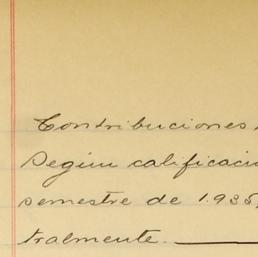 Contribuciones
Segun calificació
semestre de 1.935,
tralmente.